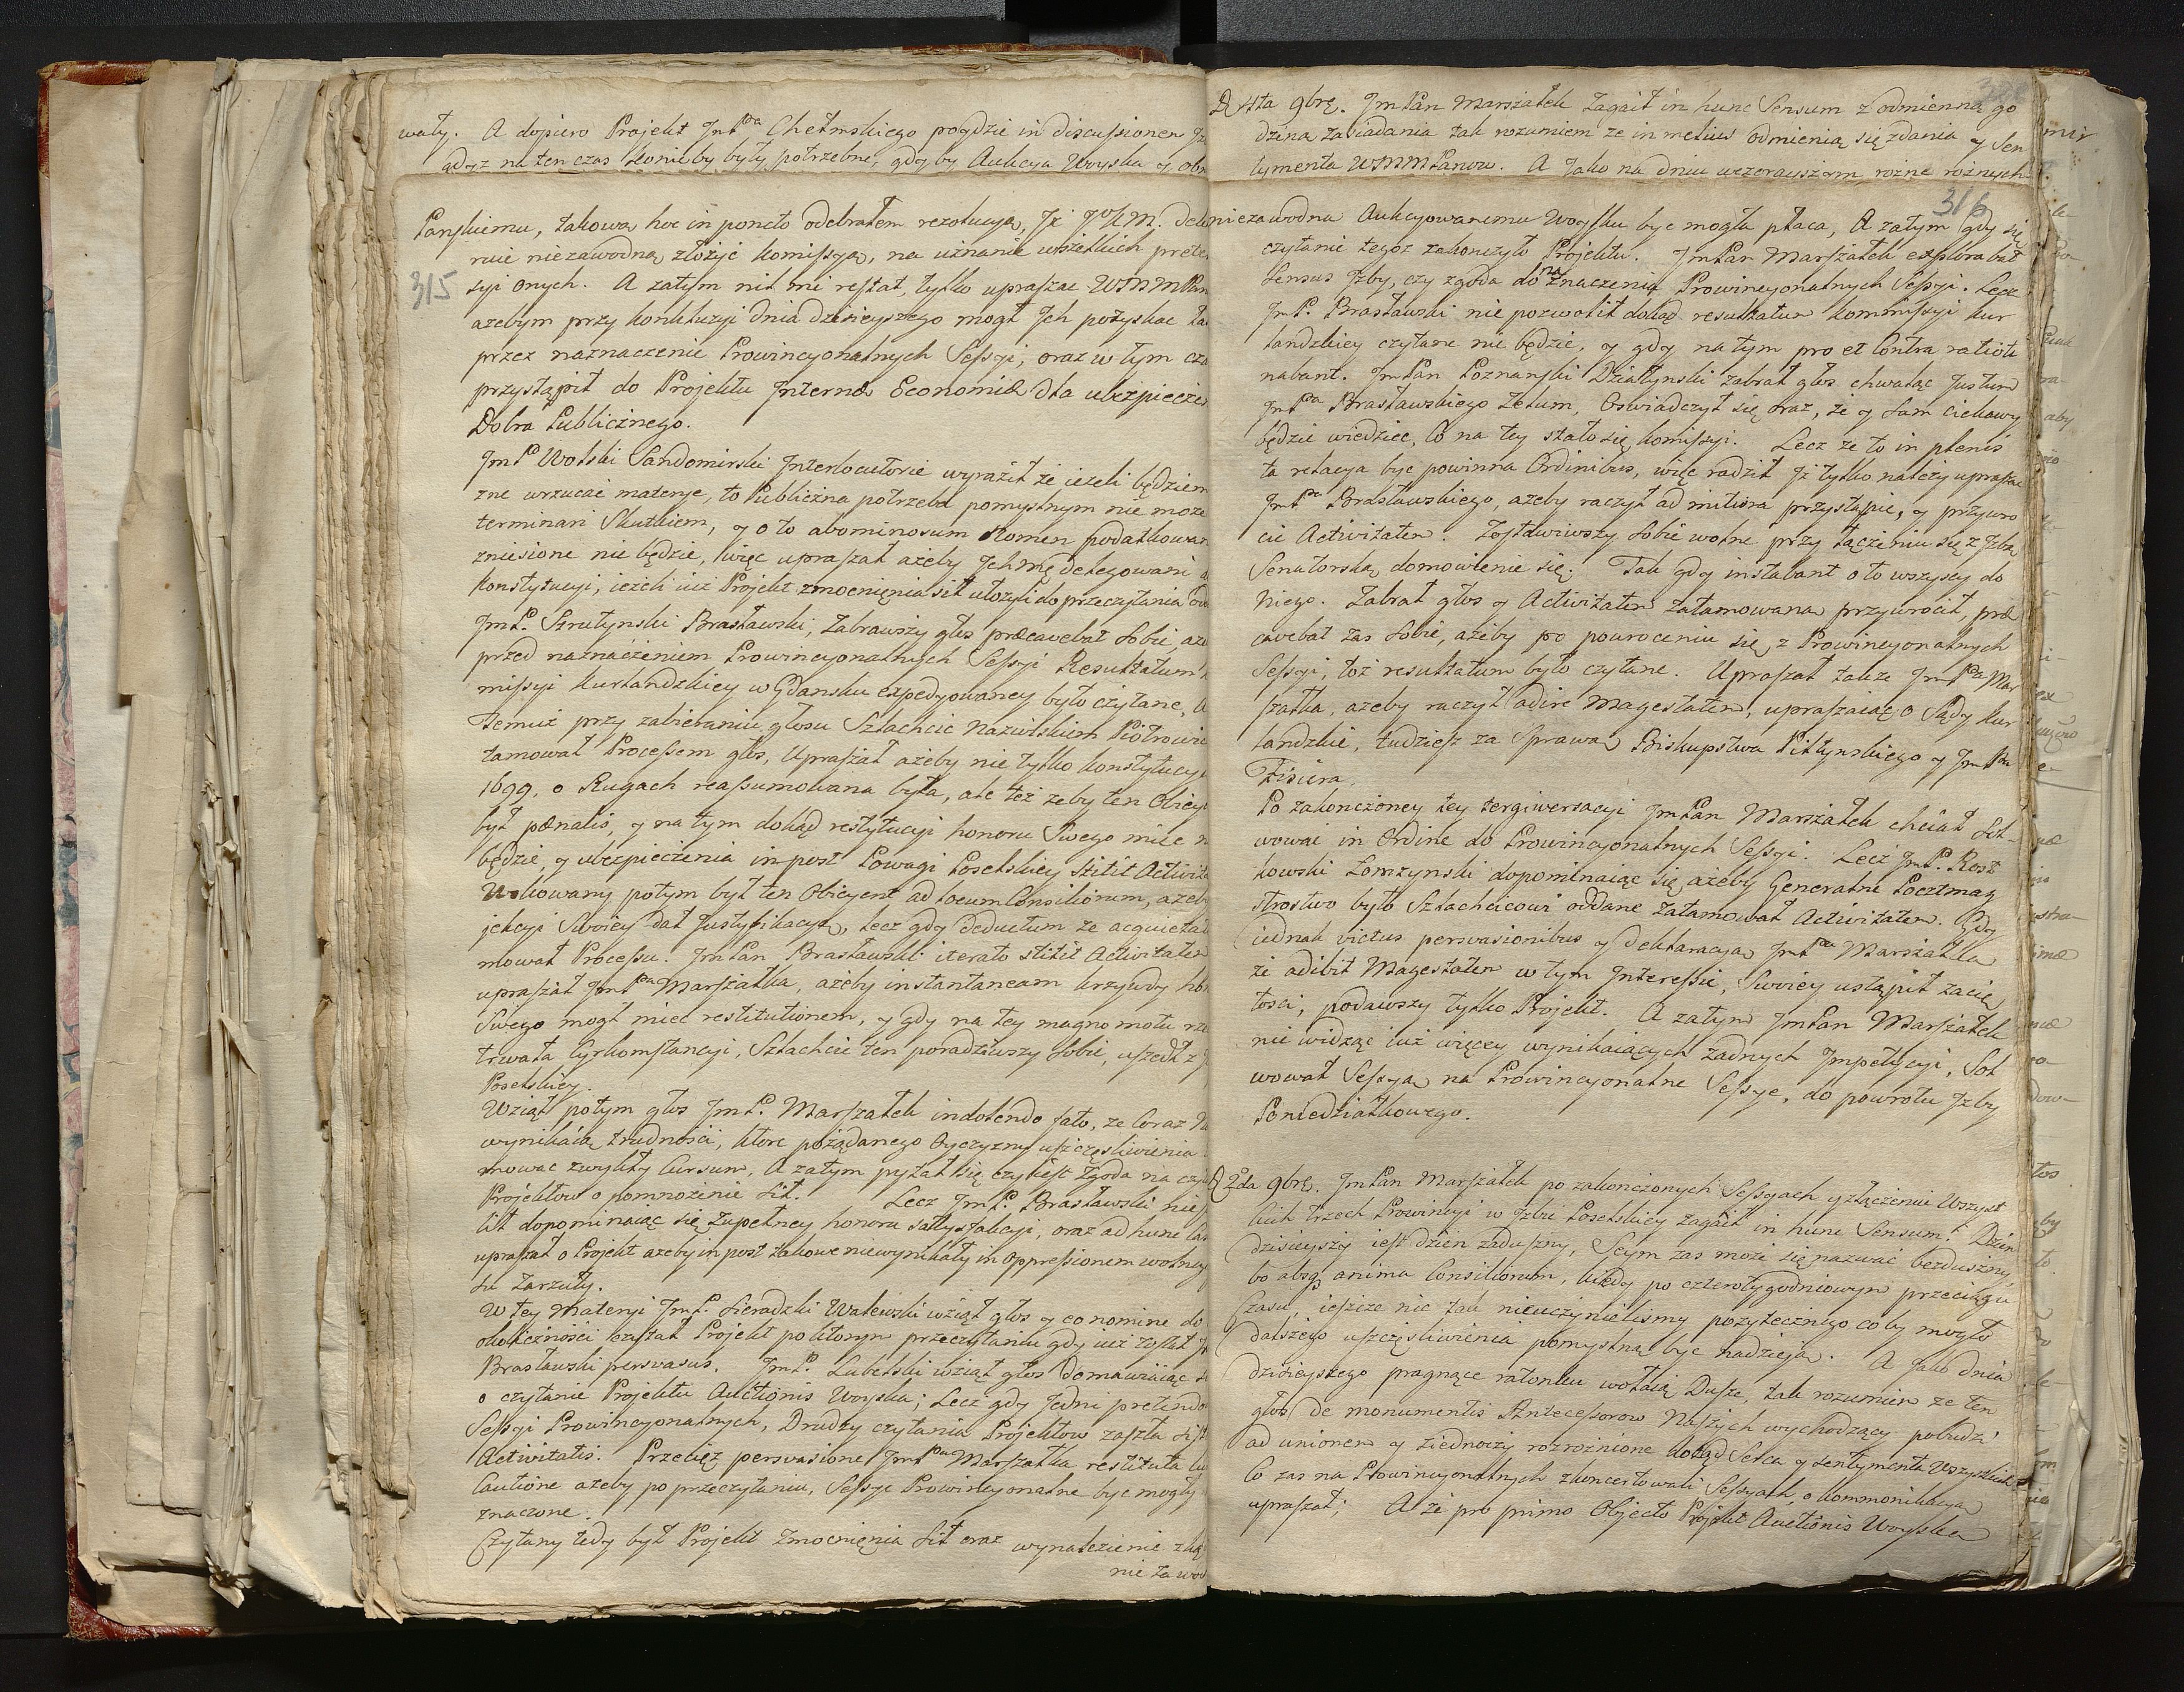 wały. A dopiero Projekt JmPa Chełmskiego poydzie in discussionem
gdyż na ten czas konie by były potrzebne, gdy by Aukcya Woyska y
315
Pańskiemu, takową hoc in puncto odebrałem rezolucyą, Jż JKM.
ruie niezawodną złożyć komissyą, na uznanie wszelkich
syi onych. A zatym nil mi restat, tylko upraszac WMM
azebym przy konkluzyi dnia dzisieyszego mogł Jch pozyskac
przez naznaczenie Prowincyonalnych Sessyi, oraz w tym
przystąpił do Projektu Internæ Economiæ dla
Dobra Publicznego.
JmP Wolski Sandomirski Interlocutorie wyraził że ieżeli będziem
zne wrzucać materye, to Publiczna potrzeba pomyslnym nie może
terminari Skutkiem, y o to abominosum Nomen
zniesione nie będzie, więc upraszał ażeby Jchmć delegowani
konstytucyi, ieżeli iuż Projekt zmocnięnia sił ułożyli do przeczytania
JmP. Szrutynski Brasławski, Zabrawszy głos præcavebat sobie,
przed naznaczeniem Prowincyonalnych Sessyi Resultatum
missyi Kurlandzkiey w Gdansku expedyowaney było czytane,
Temuż przy zabieraniu głosu Szlachcic Nazwiskiem
tamował Processem głos, Upraszał ażeby nie tylko
1699. o Rugach reassumowana była, ale też żeby ten
był pœnalis, y na tym dokąd restytucyi honoru Swego miec
będzie, y ubezpieczenia in post Powagi Poselskiey stitit
Wokowany potym był ten Obicyent ad locum Consiliorum,
jekcyi Swoiey dał Justyfikacyą, lecz gdy deductum że
mował Processu. JmPan Brasławski iterato stitit Activitatem
upraszał JmPana Marszałka, ażeby instantaneam krzywdy
Swego mogł miec restitutionem, y gdy na tey magno motu
trwała Cyrkomstancyi, Szlachcic ten poradziwszy sobie, uszedł z
Poselskiey.
Wziął potym głos JmP. Marszałek indolendo fato, ze Coraz
wynikaią trudności, ktore pożądanego Oyczyzny uszczęśliwienia
mowac zwykły Cursum, A zatym pytał się czy iest zgoda na
Projektow o pomnożenie sił. Lecz JmP. Brasławski nie
lił dopominaiąc się zupełney honoru sattysfakcyi, oraz ad hunc
upraszał o Projekt azeby in post takowe niewynikały in oppressionem
su Zarzuty.
W tey Materyi JmP. Sieradzki Walewski wziął głos y eo nomine do
okoliczności czytał Projekt po którym przeczytaniu gdy iuż został
Brasławski persvasus. JmP. Lubelski wziął głos domawiaiąc
o czytanie Projektu Auctionis Woyska; Lecz gdy Jedni
Sessyi Prowincyonalnych, Drudzy czytania Projektow zaszła
Activitatis. Przecięż persvasione JmPana Marszałka restituta
Cautione ażeby po przeczytaniu, Sessye Prowincyonalne byc mogły
znaczone.
Czytany tedy był Projekt Zmocnięnia sił oraz wynalezienie
nie zawod
D 1sta 9brę. JmPan Marszałek Zagaił in hunc Sensum z odmienną go
dziną zasiadania tak rozumiem ze in melius odmienią się zdania y Sen
tymenta WMMPanow. A Jako na dniu wczorayszym rożne rożnych
316
niezawodna Aukcyowanemu Woysku byc mogła płaca, A zatym gdy się
czytanie tegoz zakończyło Projektu. JmPan Marszałek explorabat
Sensus Jzby, czy zgoda do naznaczenia Prowincyonalnych Sessyi. Lecz
JmP. Brasławski nie pozwolił dokąd resultatum Kommissyi Kur
landzkiey czytane nie będzie, y gdy na tym pro et Contra ratioti
nabant. JmPan Poznanski Działynski zabrał głos chwaląc Justum
JmPa Brasławskiego Zelum, Oswiadczył się oraz, że y sam ciekawy
będzie wiedziec, Co na tey stało się komissyi. Lecz ze to in plenis
ta relacya byc powinna Ordinibus, więc radził Jż tylko należy upraszac
JmPa Brasławskiego, ażeby raczył ad mitiora przystąpic, y przywro
cic Activitatem. Zostawiwszy sobie wolne przy łączeniu się z Jzbą
Senatorską domowienie się. Tak gdy instabant o to wszyscy do
Niego. Zabrał głos y Activitatem zatamowaną przywrócił, præ
cavebat zas sobie, ażeby po powroceniu się z Prowincyonalnych
Sessyi, toż resultatum było czytane. Upraszał także JmPa Mar
szałka, ażeby raczył adire Magestatem, upraszaiąc o Sądy Kur
landzkie, tudziesz za Sprawą Biskupstwa Piltynskiego y JmPa
Fisiera.
Po zakonczoney tey tergiwersacyi JmPan Marszałek chciał Sol-
wowac in Ordine do Prowincyonalnych Sessyi. Lecz JmP. Rost
kowski Łomzynski dopominaiąc się ażeby Generalne Pocztmay
strostwo było Szlachcicowi oddane zatamował Activitatem. Gdy
iednak victus persvasionibus y deklaracyą JmPa Marszałka
że adibit Magestatem w tym Interessie, Swoiey ustąpił zacię
tości, podawszy tylko Projekt. A zatym JmPan Marszałek
nie widząc iuż więcey wynikaiących żadnych Impetycyi, Sol
wował Sessyą na Prowincyonalne Sessye, do powrotu Jzby
Poniedziałkowego.
D 2da 9brę. JmPan Marszałek po zakonczonych Sessyach y złączeniu Wszyst
kich trzech Prowincyi w Jzbie Poselskiey zagaił in hunc Sensum. Dzień
dzisieyszy iest dzien zaduszny, Seym zas może się nazwać bezduszny,
bo absq anima Consiliorum, kiedy po czterotygodniowym przeciągu
Czasu, ieszcze nic tak nieuczynielismy pożytecznego co by mogło
dalszego uszczęśliwienia pomyslną byc nadzieją. A Jako dnia
dzisieyszego pragnące ratonku wołaią Dusze, tak rozumiem że ten
głos de monumentis Antecessorow Naszych wychodzący pobudzi
ad unionem y ziednoczy rozrożnione dokąd Serca y sentymenta Wszystkich
Co zas na Prowincyonalnych zkoncertowali Sessyach, o kommonikacyą
upraszał; A że pro primo Objecto Projekt Auctionis Woyska